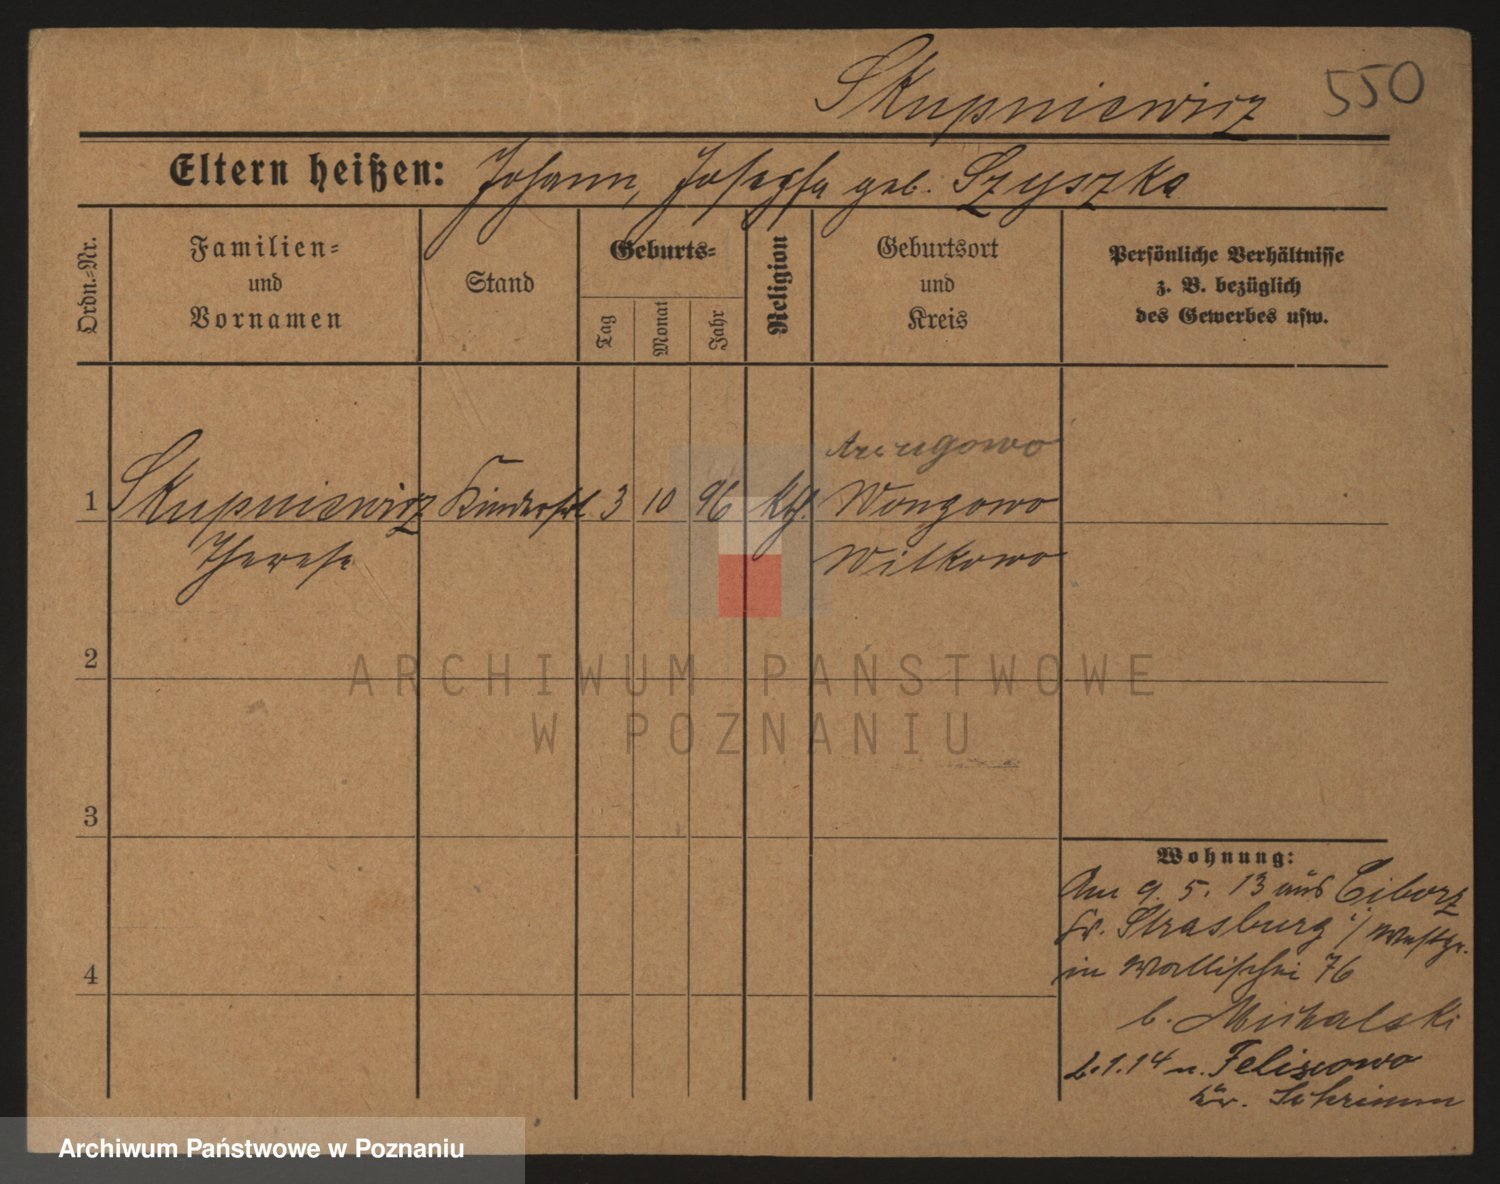 Skupniewicz 550
Eltern heißen: Johann, Josepha geb. Szyszka
Ordn.-Nr.
Familien-
und
Vornamen
Stand
Geburts-
Tag
Monat
Jahr
Religion
Geburtsort
und
Kreis
Persönliche Verhältnisse
z. B. bezüglich
des Gewerbes usw.
1 Skupniewicz Kinderfrl. 3 10 96 kth. Wongowo
Therese Witkowo
2
3
4
Wohnung:
Am 9. 5. 13 aus Ciborz
Kr. Strasburg i/ Westpr.
in Wallischei 76
b. Michalski
2.1.14 n. Feliscowo
Kr. Schrimm
ARCHIWUM PAŃSTWOWE
W POZNANIU
Archiwum Państwowe w Poznaniu